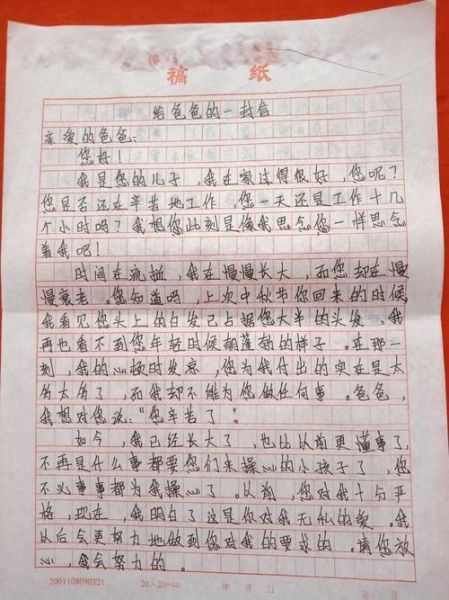 稿 纸
给爸爸的一封信
亲爱的爸爸:
您好!
我是您的儿子,我在家过得很好,您呢?
您是否还在辛苦地工作,您一天还是工作十几
个小时吗?我想您此刻是像我思念您一样思念
着我吧!
时间在流逝,我在慢慢长大,而您却在慢
慢衰老。您知道吗,上次中秋节您回来的时候,
我看见您头上的白发已占据您大半的头发,我
再也看不到您年轻时候朝气蓬勃的样子。在那一
刻,我的心顿时发哀,您为我付出的实在是太
多太多了,而我却不能为您做任何事。爸爸,
我想对您说:“您辛苦了”。
如今,我已经长大了,也比以前更懂事了,
不再是什么事都要您们来操心的小孩子了,您
不必事事都为我操心了。以前,您对我十分严
格,现在,我明白了这是你对我无私的爱。我
以后会更努力地做到您对我的要求的。请您放
心,我会努力的。
2001108090321 20×20=40 年 月 日 第 页